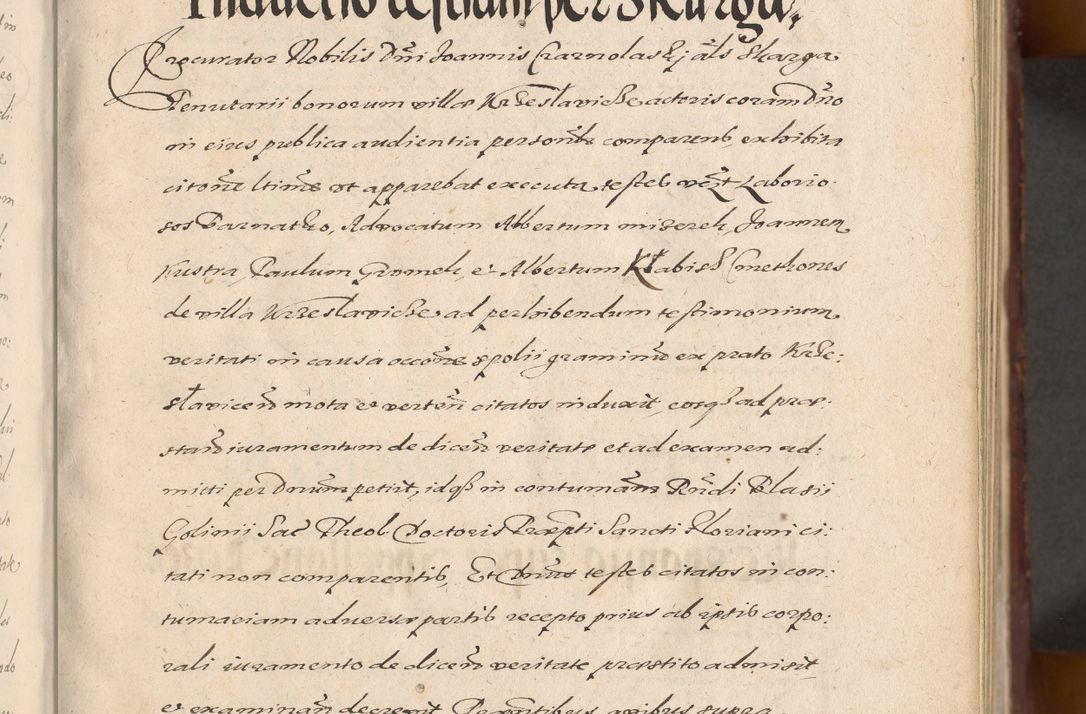 Inductio testium per Skarga.
Procurator Nobilis Dni Joannis Czarnolaskj als Skarga
Tenutarii bonorum villæ Krzesławicze actoris coram Dno
in eius publica audientia personlr comparens, exhibita
citone ltima ut apparebat executa, testes vczt Laborio-
sos Barnatko, Advocatum Albertum miserek, Joannem
Kustra, Paulum Gromek, et Albertum Kłabisz Cmethones
de villa Krzesławicze ad perhibendum testimonium
veritati in causa occone spolii graminis ex prato Krze:
sławicen mota et verten citatos induxit, eosq3 ad præ:
stan iuramentum de dicen veritate et ad examen ad:
mitti per Dnum petiit, idq3 in contumam Rndi Blasii
Golinii Sac Theol Doctoris Præpti Sancti Floriani ci:
tati non comparentis, Et Dnus testes citatos in con:
tumaciam adversæ partis recepto prius ab iptis corpo:
rali iuramento de dicen veritate præstito admisit
et examinan decrevit Præntibus quibus supra.